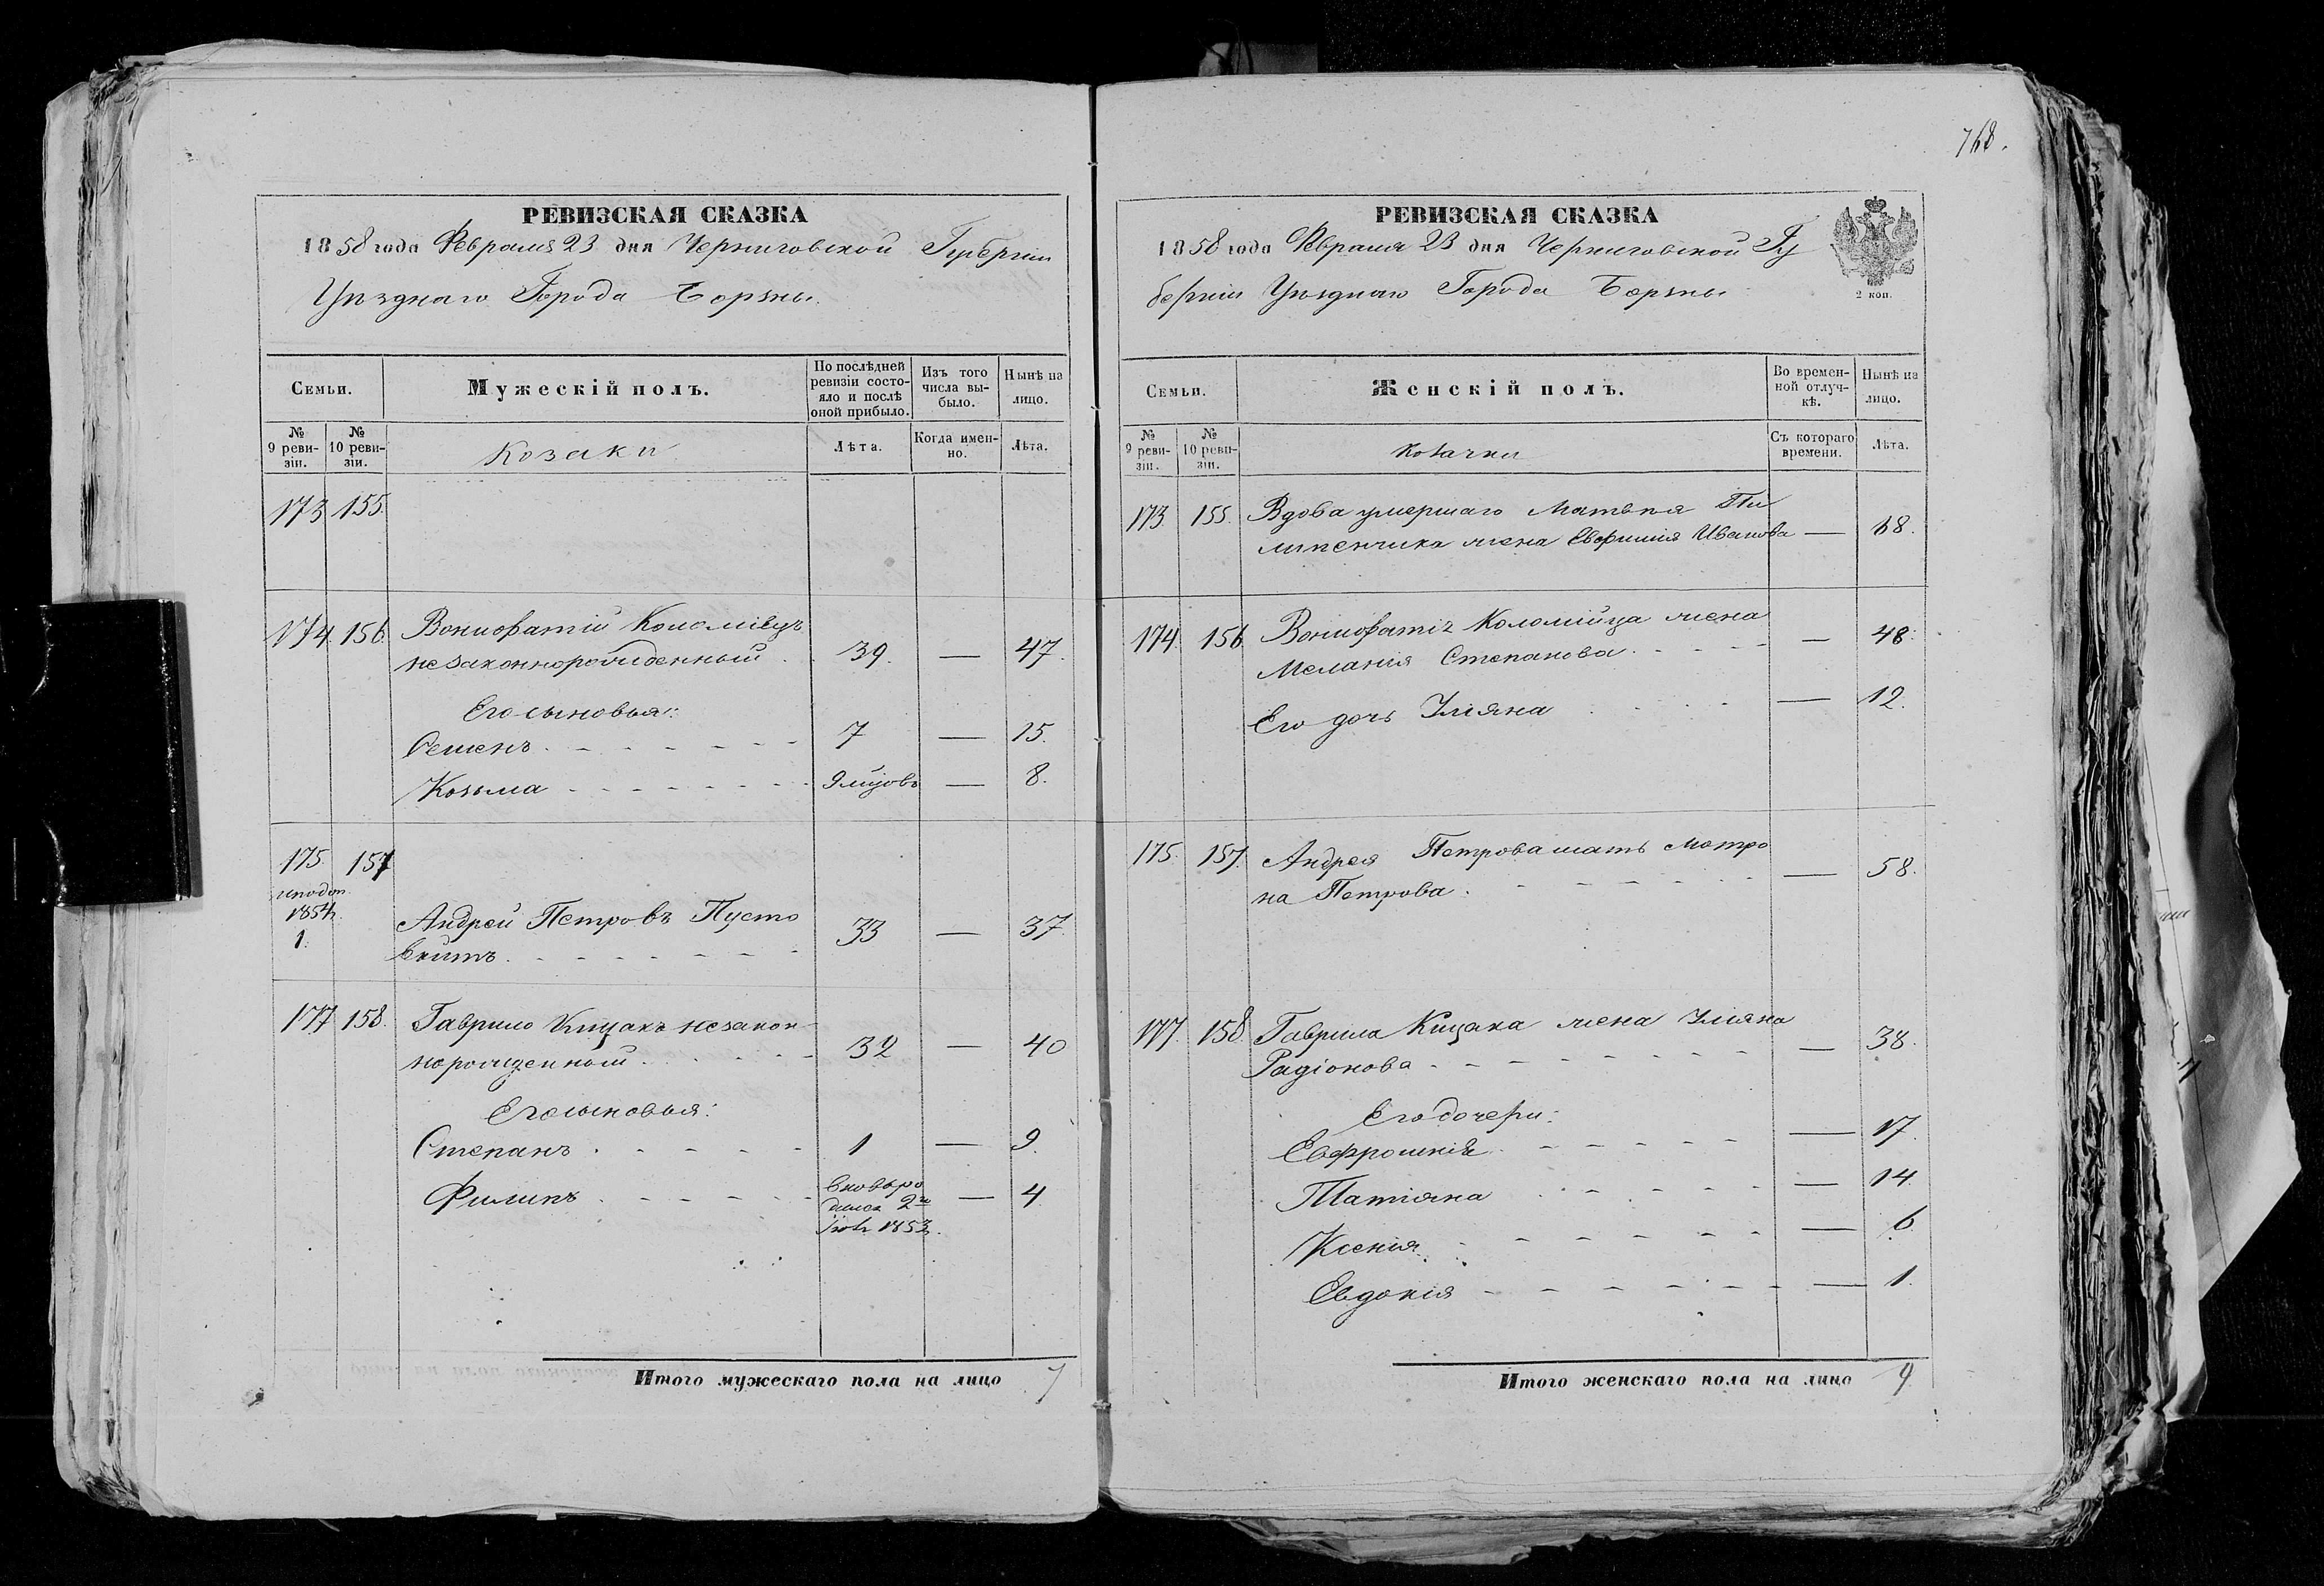 768.
РЕВИЗСКАЯ СКАЗКА
1858 года Февраля 23 дня Черниговской Губерніи
Уѣзднаго Города Борзны.
Семьи.
Мужескій полъ.
По послѣдней ревизіи состояло и послѣ оной прибыло.
Изъ того числа выбыло.
Нынѣ на лицо.
№ 9 ревизіи.
№ 10 ревизіи.
Козаки
Лѣта.
Когда именно.
Лѣта.
173 155.
174. 156. Вонифатій Коломіецъ
незаконнорожденный . . 39. — 47.
Его сыновья:
Семенъ . 7 — 15.
Козьма 9 мцовъ — 8.
175. 157
1854
1.
Андрей Петровъ Пусто
33 — 37.
177 158. Гаврило Кицакъ незакон-
норожденный . 32 — 40
Его сыновья:
Степанъ . 1 — 9.
Филипъ . вновь ро
дился 2
1853. — 4
Итого мужескаго пола на лицо 7
РЕВИЗСКАЯ СКАЗКА
1858 года Февраля 23 дня Черниговской Гу
берніи Уѣзднаго Города Борзны
2 коп.
Семьи.
Женскій полъ.
Во временной отлучкѣ.
Нынѣ на лицо.
№ 9 ревизіи.
№ 10 ревизіи.
Козачки
Съ котораго времени.
Лѣта.
173. 155. Вдова умершаго Матвѣя Пи
липенчика жена Евфимія Иванова — 68.
174. 156 Вонифатія Коломійца жена
Меланія Степанова . — 48.
Его дочь Уліяна — 12.
175. 157. Андрея Петрова мать Матро
на Петрова . — 58.
177. 158. Гаврила Кицака жена Уліяна
Радіонова . — 38.
Его дочери:
Евфросинія — 17.
Татіяна — 14.
Ксенія — 6.
Евдокія — 1.
Итого женскаго пола на лицо 9